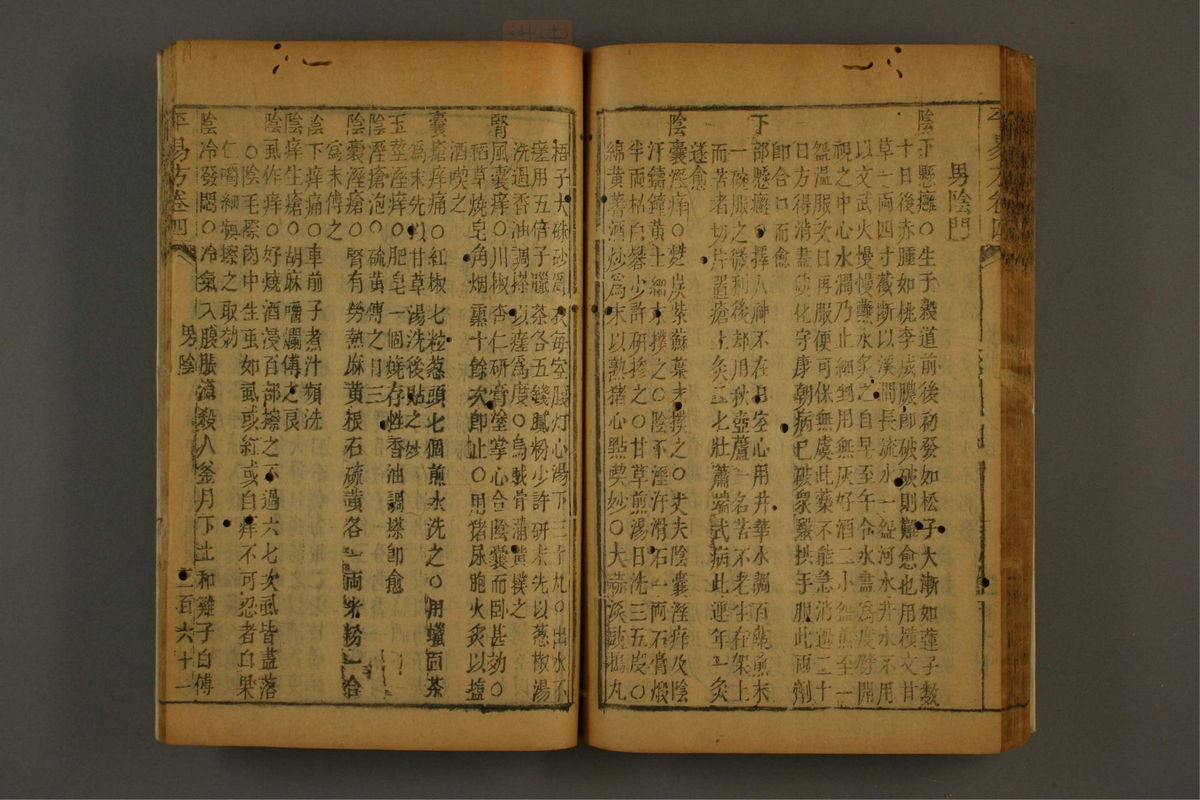 男陰門
陰下懸癰○生于穀道前後初發如松子大漸如蓮子數
十日後赤腫如桃李成膿即破破則難愈也用橫文甘
草一兩四寸截斷以溪澗長流水一盌河水井水不用
以文武火慢慢蘸水炙之自早至午令水盡為度劈開
視之中心水潤乃止細剉用無灰好酒二小盌煎至一
盌溫服次日再服便可保無虞此藥不能急消過二十
日方得消盡康朝病已破眾醫拱手服此兩劑
即合而愈
下部懸癰○擇人神不在日空心用井華水調百藥煎末
一碗服之微利後却用秋壺蘆一名苦不老生在架上
而苦者切片置瘡上灸二七壯蕭端式病此連年一灸
遂愈
陰囊溼痒○炭紫蘇葉末撲之○丈夫陰囊溼痒及陰
汗鑄鐘黃土細末撲之○陰下溼汗滑石一兩石膏煅
半兩枯白礬少許研摻之○甘草煎湯日洗三五度○
綿黃蓍酒炒為末以熟豬心點喫妙○大蒜淡豉搗丸
梧子大硃砂為衣每空腹灯心湯下三十丸○出水不
瘥用五倍子臘茶各五錢膩粉少許研末先以葱椒湯
洗過香油調搽以瘥為度○烏賊骨蒲黃撲之
腎風囊痒○川椒杏仁研膏塗掌心合陰囊而臥甚効○
稻草燒皂角烟熏十餘次即止○用豬尿胞火炙以塩
酒喫之
囊瘡痒痛○紅椒七粒葱頭七個煎水洗之○用蠟面茶
為末先以甘草湯洗後貼之妙
玉莖溼痒○肥皂一個燒存性香油調搽即愈
陰溼瘡泡○硫黃傅之日三
陰囊溼瘡○腎有勞熱麻黃根石硫黃各一兩米粉一合
為末傅之
陰下痒痛○車前子煮汁頻洗
陰痒生瘡○胡麻嚼爛傅之良
陰虱作痒○好燒酒浸百部擦之不過六七次虱皆盡落
○陰毛際肉中生虫如虱或紅或白痒不可忍者白果
仁嚼細頻擦之取効
陰冷發悶○冷氣入腹脹滿殺人釜月下土和雞子白傅
平易方卷四
男陰
一百六十一